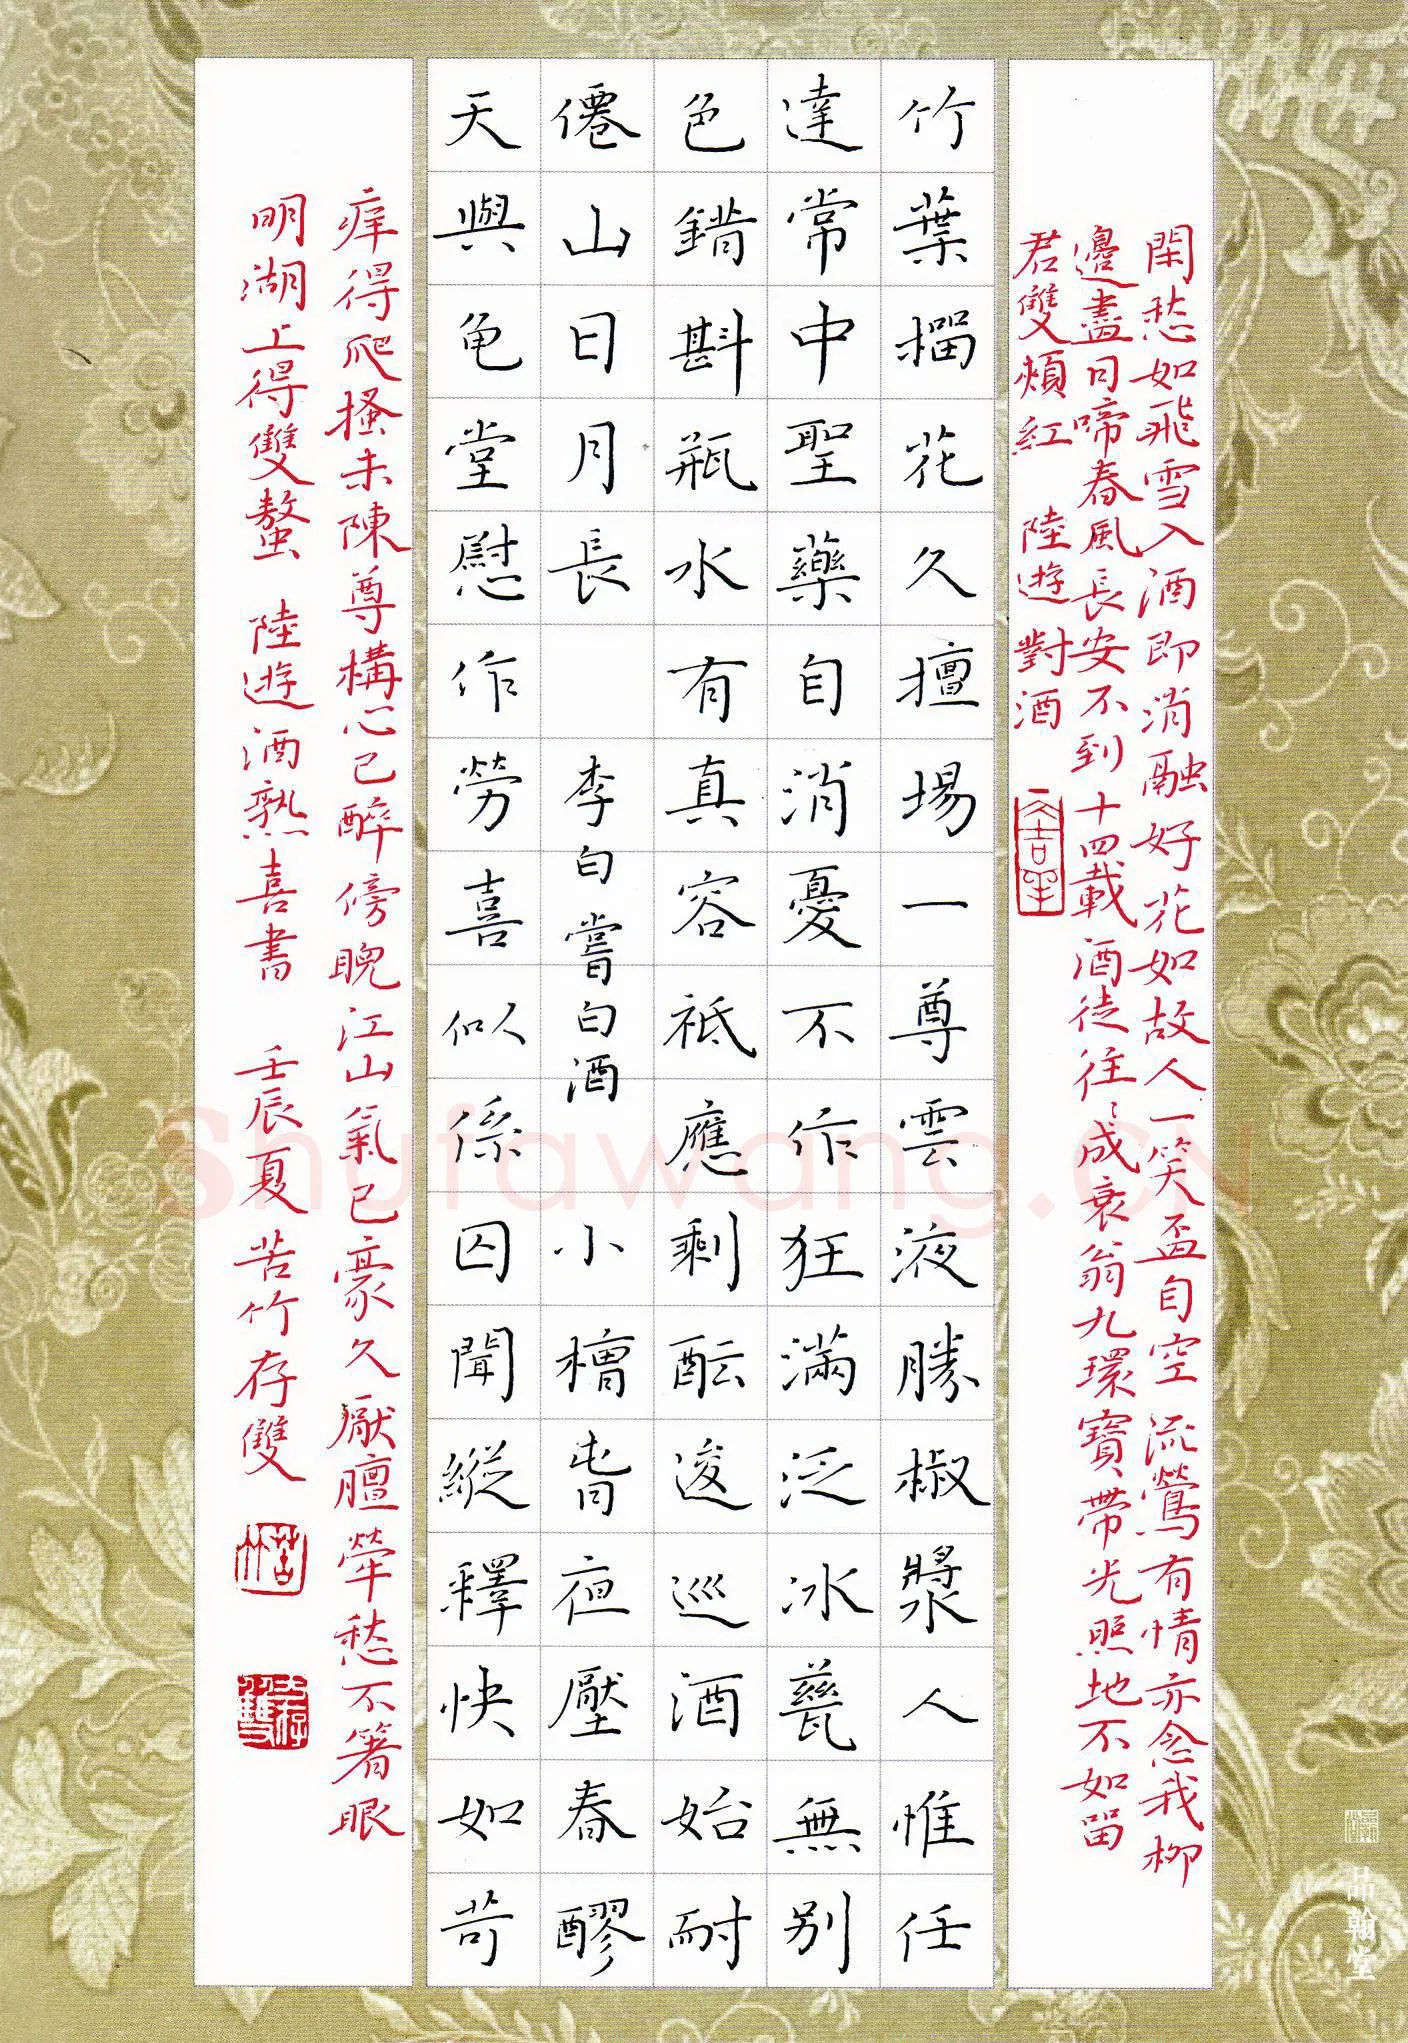 閑愁如飛雪入酒即消融好花如故人一笑盃自空 流鶯有情亦念我柳
邊盡日啼春風長安不到十四載酒徒往〻成衰翁九環寶帶光照地不如留
君雙頰紅 陸遊對酒
竹葉榴花久擅場一尊雲液勝椒漿人惟任
達常中聖藥自消憂不作狂滿泛冰甆無別
色錯斟瓶水有真容祗應剩酝逡巡酒始耐
僊山日月長 李白嘗白酒 小槽旾夜壓春醪
天與龟堂慰作勞喜似係囚聞縱釋快如苛
痒得爬搔未陳尊構心已醉傍晚江山氣已豪久厭膻葷愁不著眼
明湖上得雙螯 陸遊酒熟喜書 壬辰夏苦竹存雙
苦竹
存雙
品翰堂
shufawang.CN